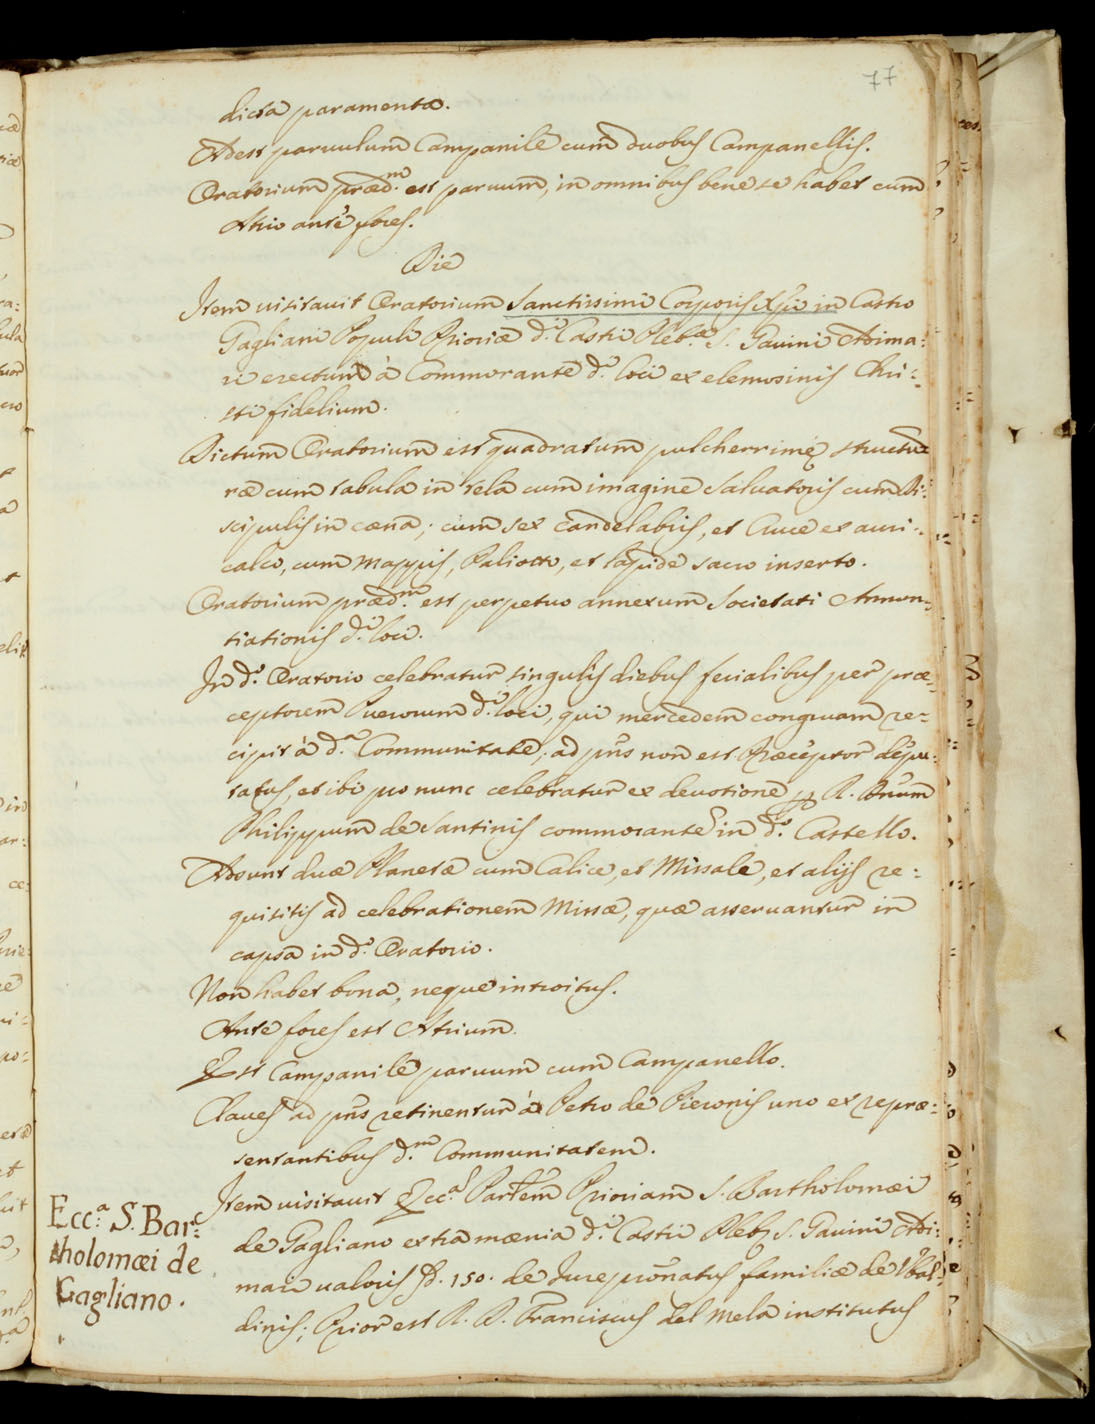 77
dicta paramenta.
Adest paruulum Campanile cum duobus Campanellis.
Oratorium præd.m est paruum, in omnibus bene se habet cum
Atrio ante fores.
Die
Item uisitauit Oratorium Sanctissimi Corporis Xpi in Castro
Gagliani Populi Prioriæ d.i Castri Pleb.æ S. Gauini Adima:
ri erectum à Commorante d.i loci ex elemosinis Chri:
sti fidelium.
Dictum Oratorium est quadratum pulcherrimę structu
ræ cum tabula in tela cum imagine Saluatoris cum Di:
scipulis in cœna; cum sex candelabris, et Cruce ex auri:
calco, cum Mappis, Paliotto, et lapide sacro inserto.
Oratorium præd.m est perpetuo annexum Societati Annun:
tiationis d.i loci.
In d.o Oratorio celebratur singulis diebus ferialibus per præ:
ceptorem Puerorum d.i loci, qui mercedem congruam re:
cipit à d.a Communitate; ad pñs non est Præceptor depu:
tatus, et ibi pro nunc celebratur ex deuotione p R. Dnum
Philippum de Santinis commorante in d.o Castello.
Adsunt duæ Planetæ cum Calice, et Missale, et alijs re:
quisitis ad celebrationem Missæ, quæ asseruantur in
capsa in d.o Oratorio.
Non habet bona, neque introitus.
Ante fores est Atrium.
Est Campanile paruum cum Campanello.
Claues ad pñs retinentur à Petro de Pieronis uno ex repræ:
sentantibus d.m Communitatem.
Item uisitauit Ecc.a Parlem Prioriam S. Bartholomæi
de Gagliano extra mœnia d.i Castri Pleb. S. Gauini Adi:
mari ualoris 150. de Iure pronatus familiæ de Vbal:
dinis; Prior est R. D. Franciscus del Mela institutus
Ecc.a S. Bar:
tholomæi de
Gagliano.